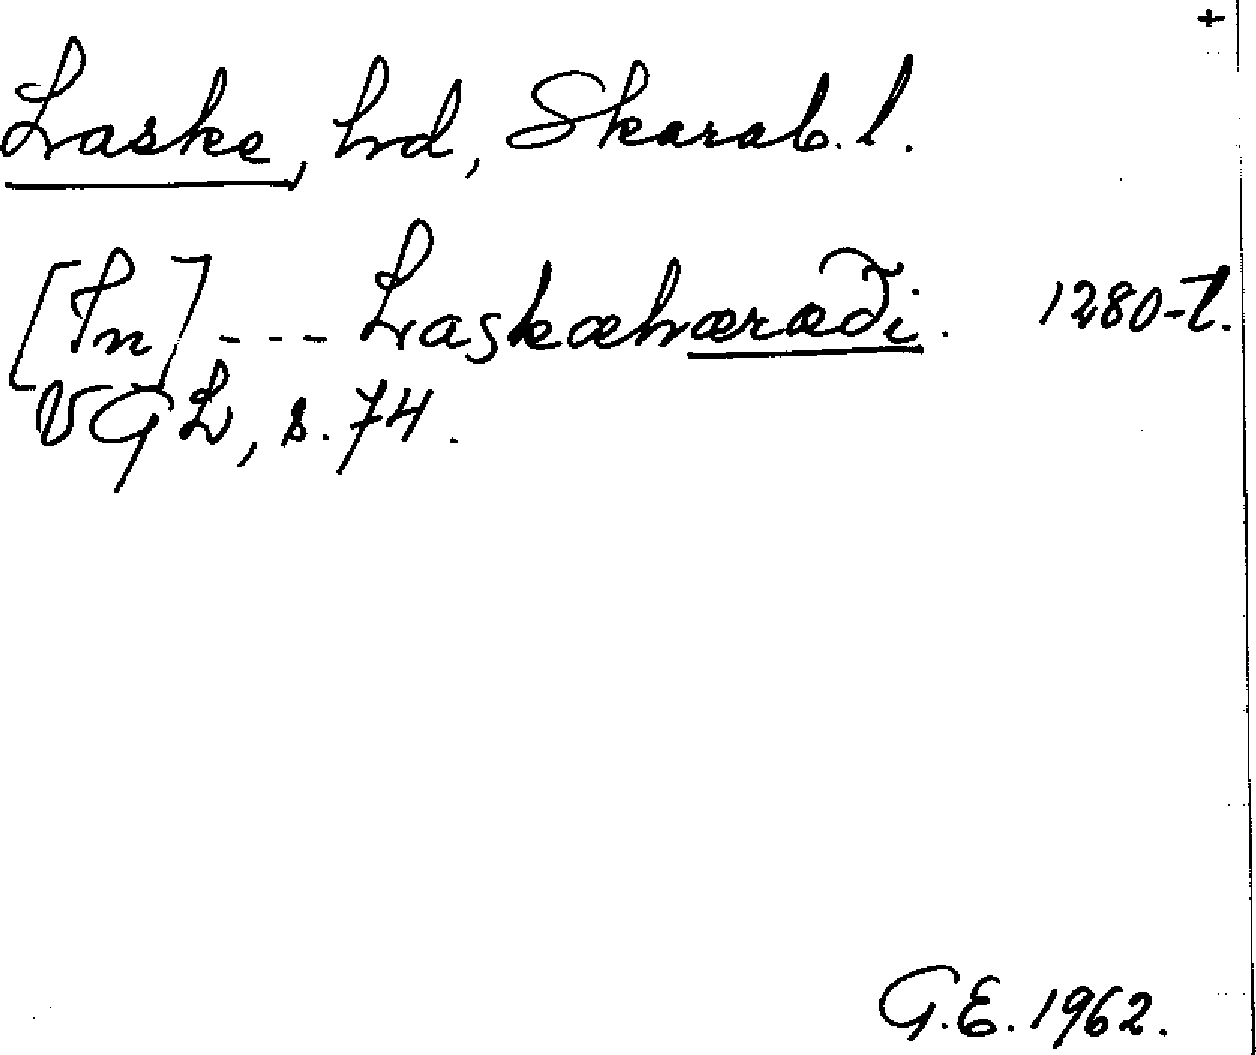 +
Laske, hd, Skarab. l.
[In] --- Laskæhæræði. 1280-t.
VGL, s. 74.
G.E. 1962.